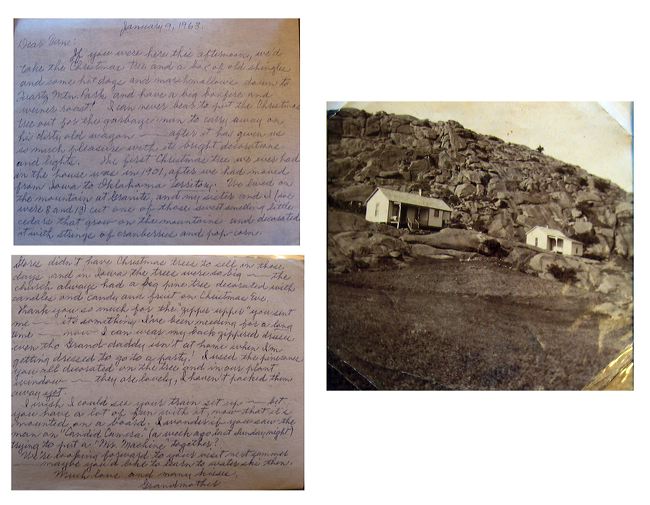 January 9, 1963.
Dear Arne:
If you were here this afternoon, we'd
take the Christmas tree and a box of old shingles
and some hot dogs and marshmallows down to
Quartz Mtn. Park and have a big bonfire and
weiner roast! I can never bear to put the Christmas
tree out for the garbage man to carry away on
his dirty old wagon — after it has given us
so much pleasure with its bright decorations
and lights. The first Christmas tree we ever had
in the house was in 1901, after we had moved
from Iowa to Oklahoma Territory. We lived on
the mountain at Granite, and my sister and I (we
were 8 and 13) cut one of those sweet smelling little
cedars that grow on the mountains and decorated
it with strings of cranberries and pop-corn.
Stores didn't have Christmas trees to sell in those
days and in Iowa the trees were so big — the
church always had a big pine tree decorated with
candles and candy and fruit on Christmas Eve.
Thank you so much for the "zipper upper" you sent
me — it's something I've been needing for a long
time — now I can wear my back-zippered dresses
even tho Grand-daddy isn't at home when I'm
getting dressed to go to a party! I used the pinecones
you all decorated on the tree and in our plant
window — they are lovely, I haven't packed them
away yet.
I wish I could see your train set up — bet
you have a lot of fun with it, now that it's
mounted on a board. I wonder if you saw the
man on "Candid Camera" (a week ago last Sunday night)
trying to put a "Mr. Machine" together?
We're looking forward to your visit next summer
— maybe you'd like to learn to water ski then.
Much love and many kisses,
Grandmother